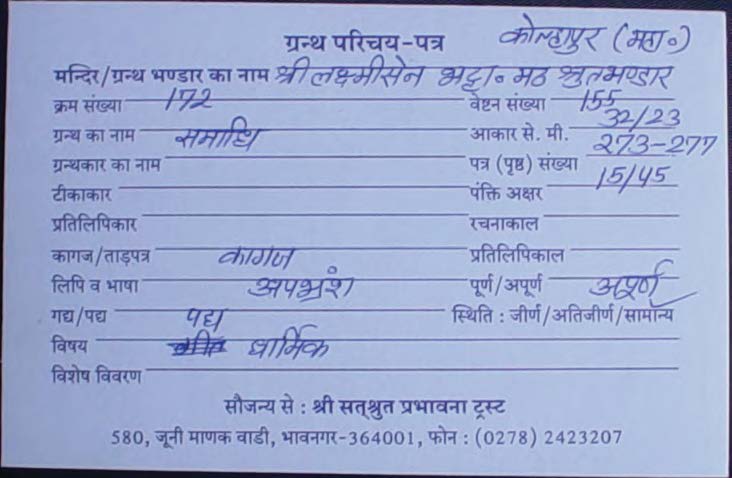 ग्रन्थ परिचय-पत्र कोल्हापुर (महा॰)
मन्दिर/ग्रन्थ भण्डार का नाम श्री लक्ष्मीसेन भट्टा॰ मठ श्रुतभण्डार
क्रम संख्या 172 वेष्टन संख्या 155
ग्रन्थ का नाम समाधि आकार से. मी. 32/23
ग्रन्थकार का नाम पत्र (पृष्ठ) संख्या 273-277
टीकाकार पंक्ति अक्षर 15/45
प्रतिलिपिकार रचनाकाल
कागज/ताड़पत्र कागज प्रतिलिपिकाल
लिपि व भाषा अपभ्रंश पूर्ण/अपूर्ण अपूर्ण
गद्य/पद्य पद्य स्थिति : जीर्ण/अतिजीर्ण/सामान्य
विषय धार्मिक
विशेष विवरण
सौजन्य से : श्री सत्श्रुत प्रभावना ट्रस्ट
580, जूनी माणक वाडी, भावनगर-364001, फोन : (0278) 2423207